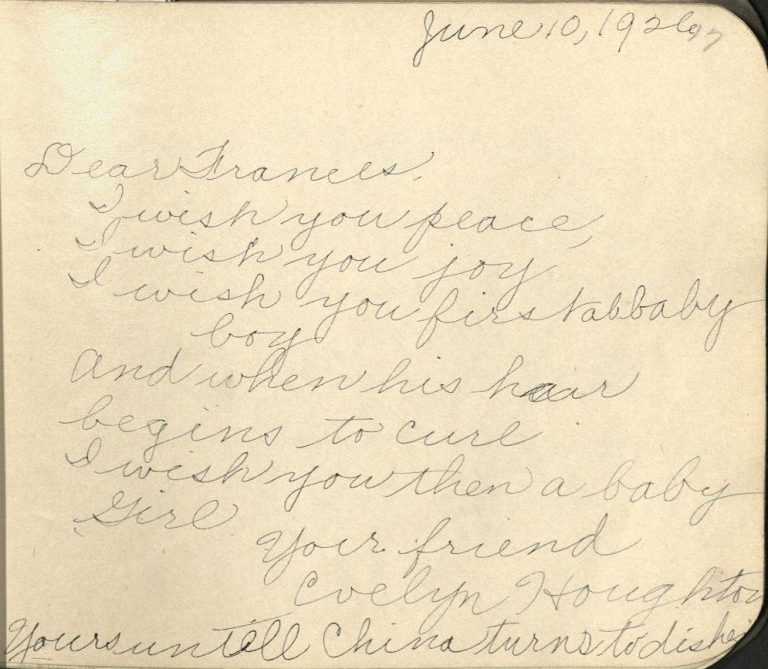 June 10, 1926
Dear Frances,
I wish you peace,
I wish you joy
I wish you first a baby
boy
and when his hair
begins to curl
I wish you then a baby
Girl
Your friend
Evelyn Houghton
Yours untell China turns to dishes